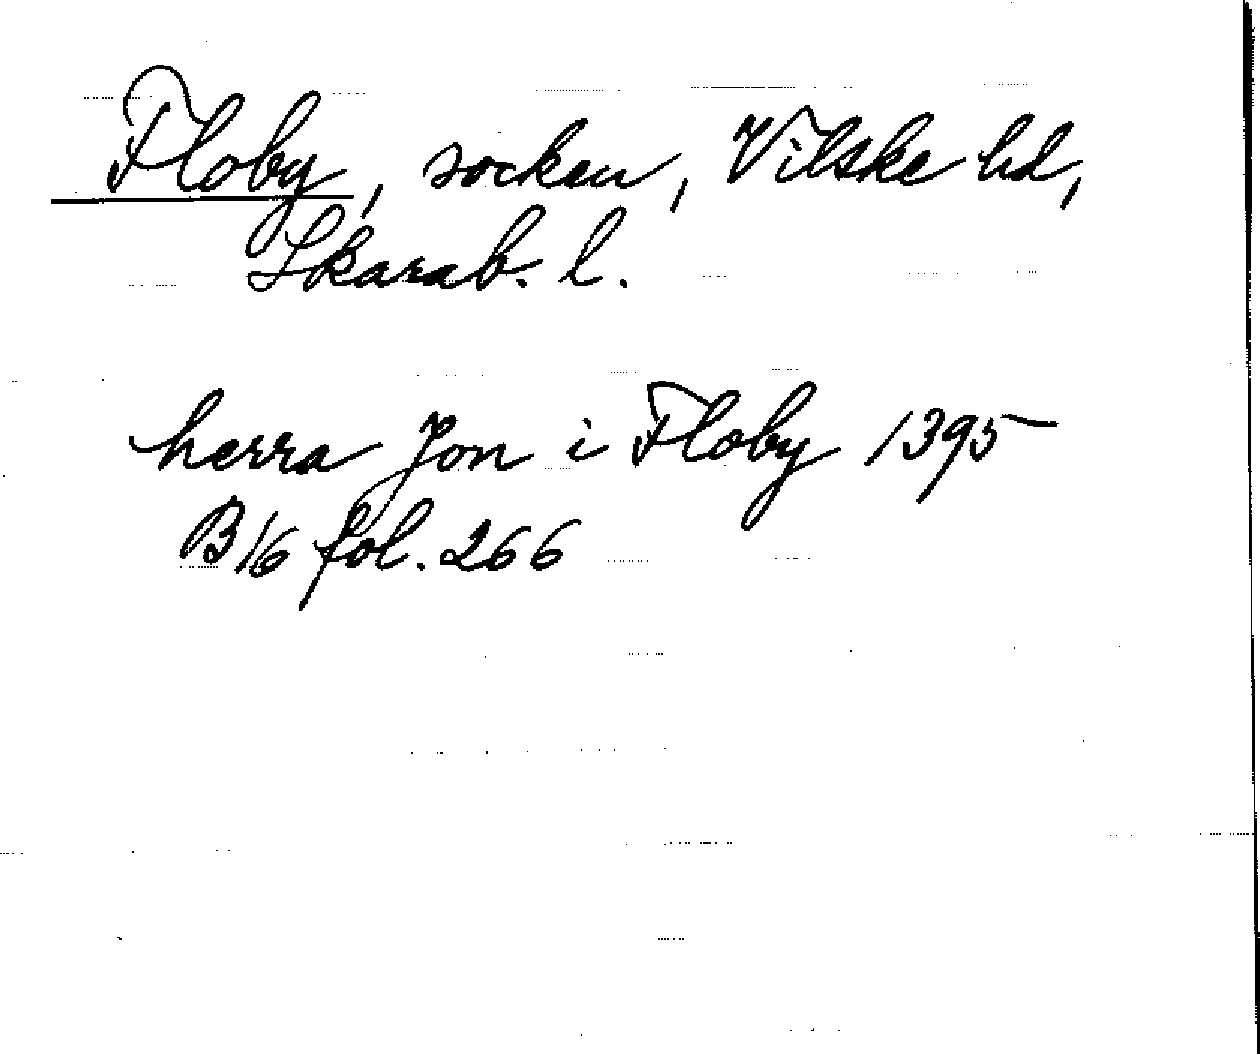 Floby, socken, Vilske hd,
Skarab. l.
herra Jon i Floby 1395
B16 fol. 266